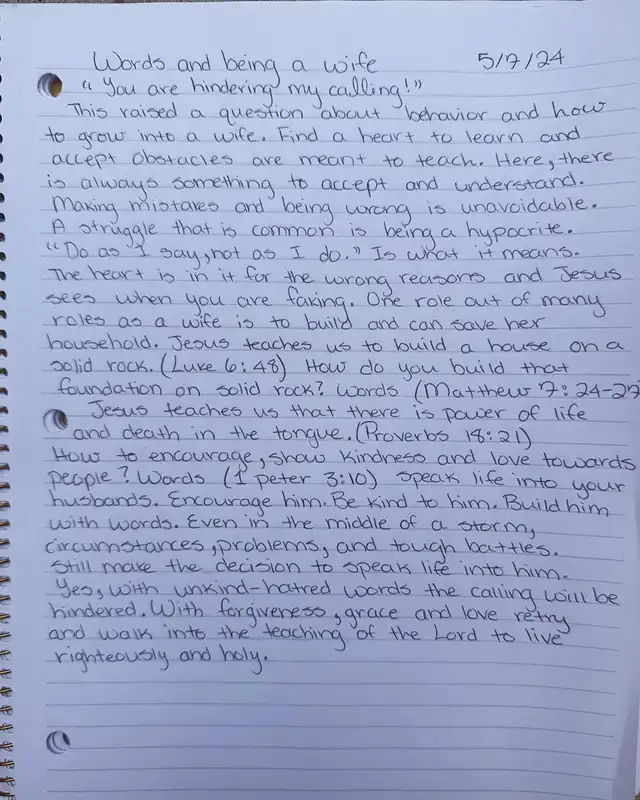 Words and being a wife 5/7/24
"You are hindering my calling!"
This raised a question about behavior and how
to grow into a wife. Find a heart to learn and
accept obstacles are meant to teach. Here, there
is always something to accept and understand.
Making mistakes and being wrong is unavoidable.
A struggle that is common is being a hypocrite.
"Do as I say, not as I do." Is what it means.
The heart is in it for the wrong reasons and Jesus
sees when you are faking. One role out of many
roles as a wife is to build and can save her
household. Jesus teaches us to build a house on a
solid rock. (Luke 6:48) How do you build that
foundation on solid rock? Words (Matthew 7:24-27
Jesus teaches us that there is power of life
and death in the tongue. (Proverbs 18:21)
How to encourage, show kindness and love towards
people? Words (1 Peter 3:10) Speak life into your
husbands. Encourage him. Be kind to him. Build him
with words. Even in the middle of a storm,
circumstances, problems, and tough battles.
Still make the decision to speak life into him.
Yes, with unkind-hatred words the calling will be
hindered. With forgiveness, grace and love retry
and walk into the teaching of the Lord to live
righteously and holy.